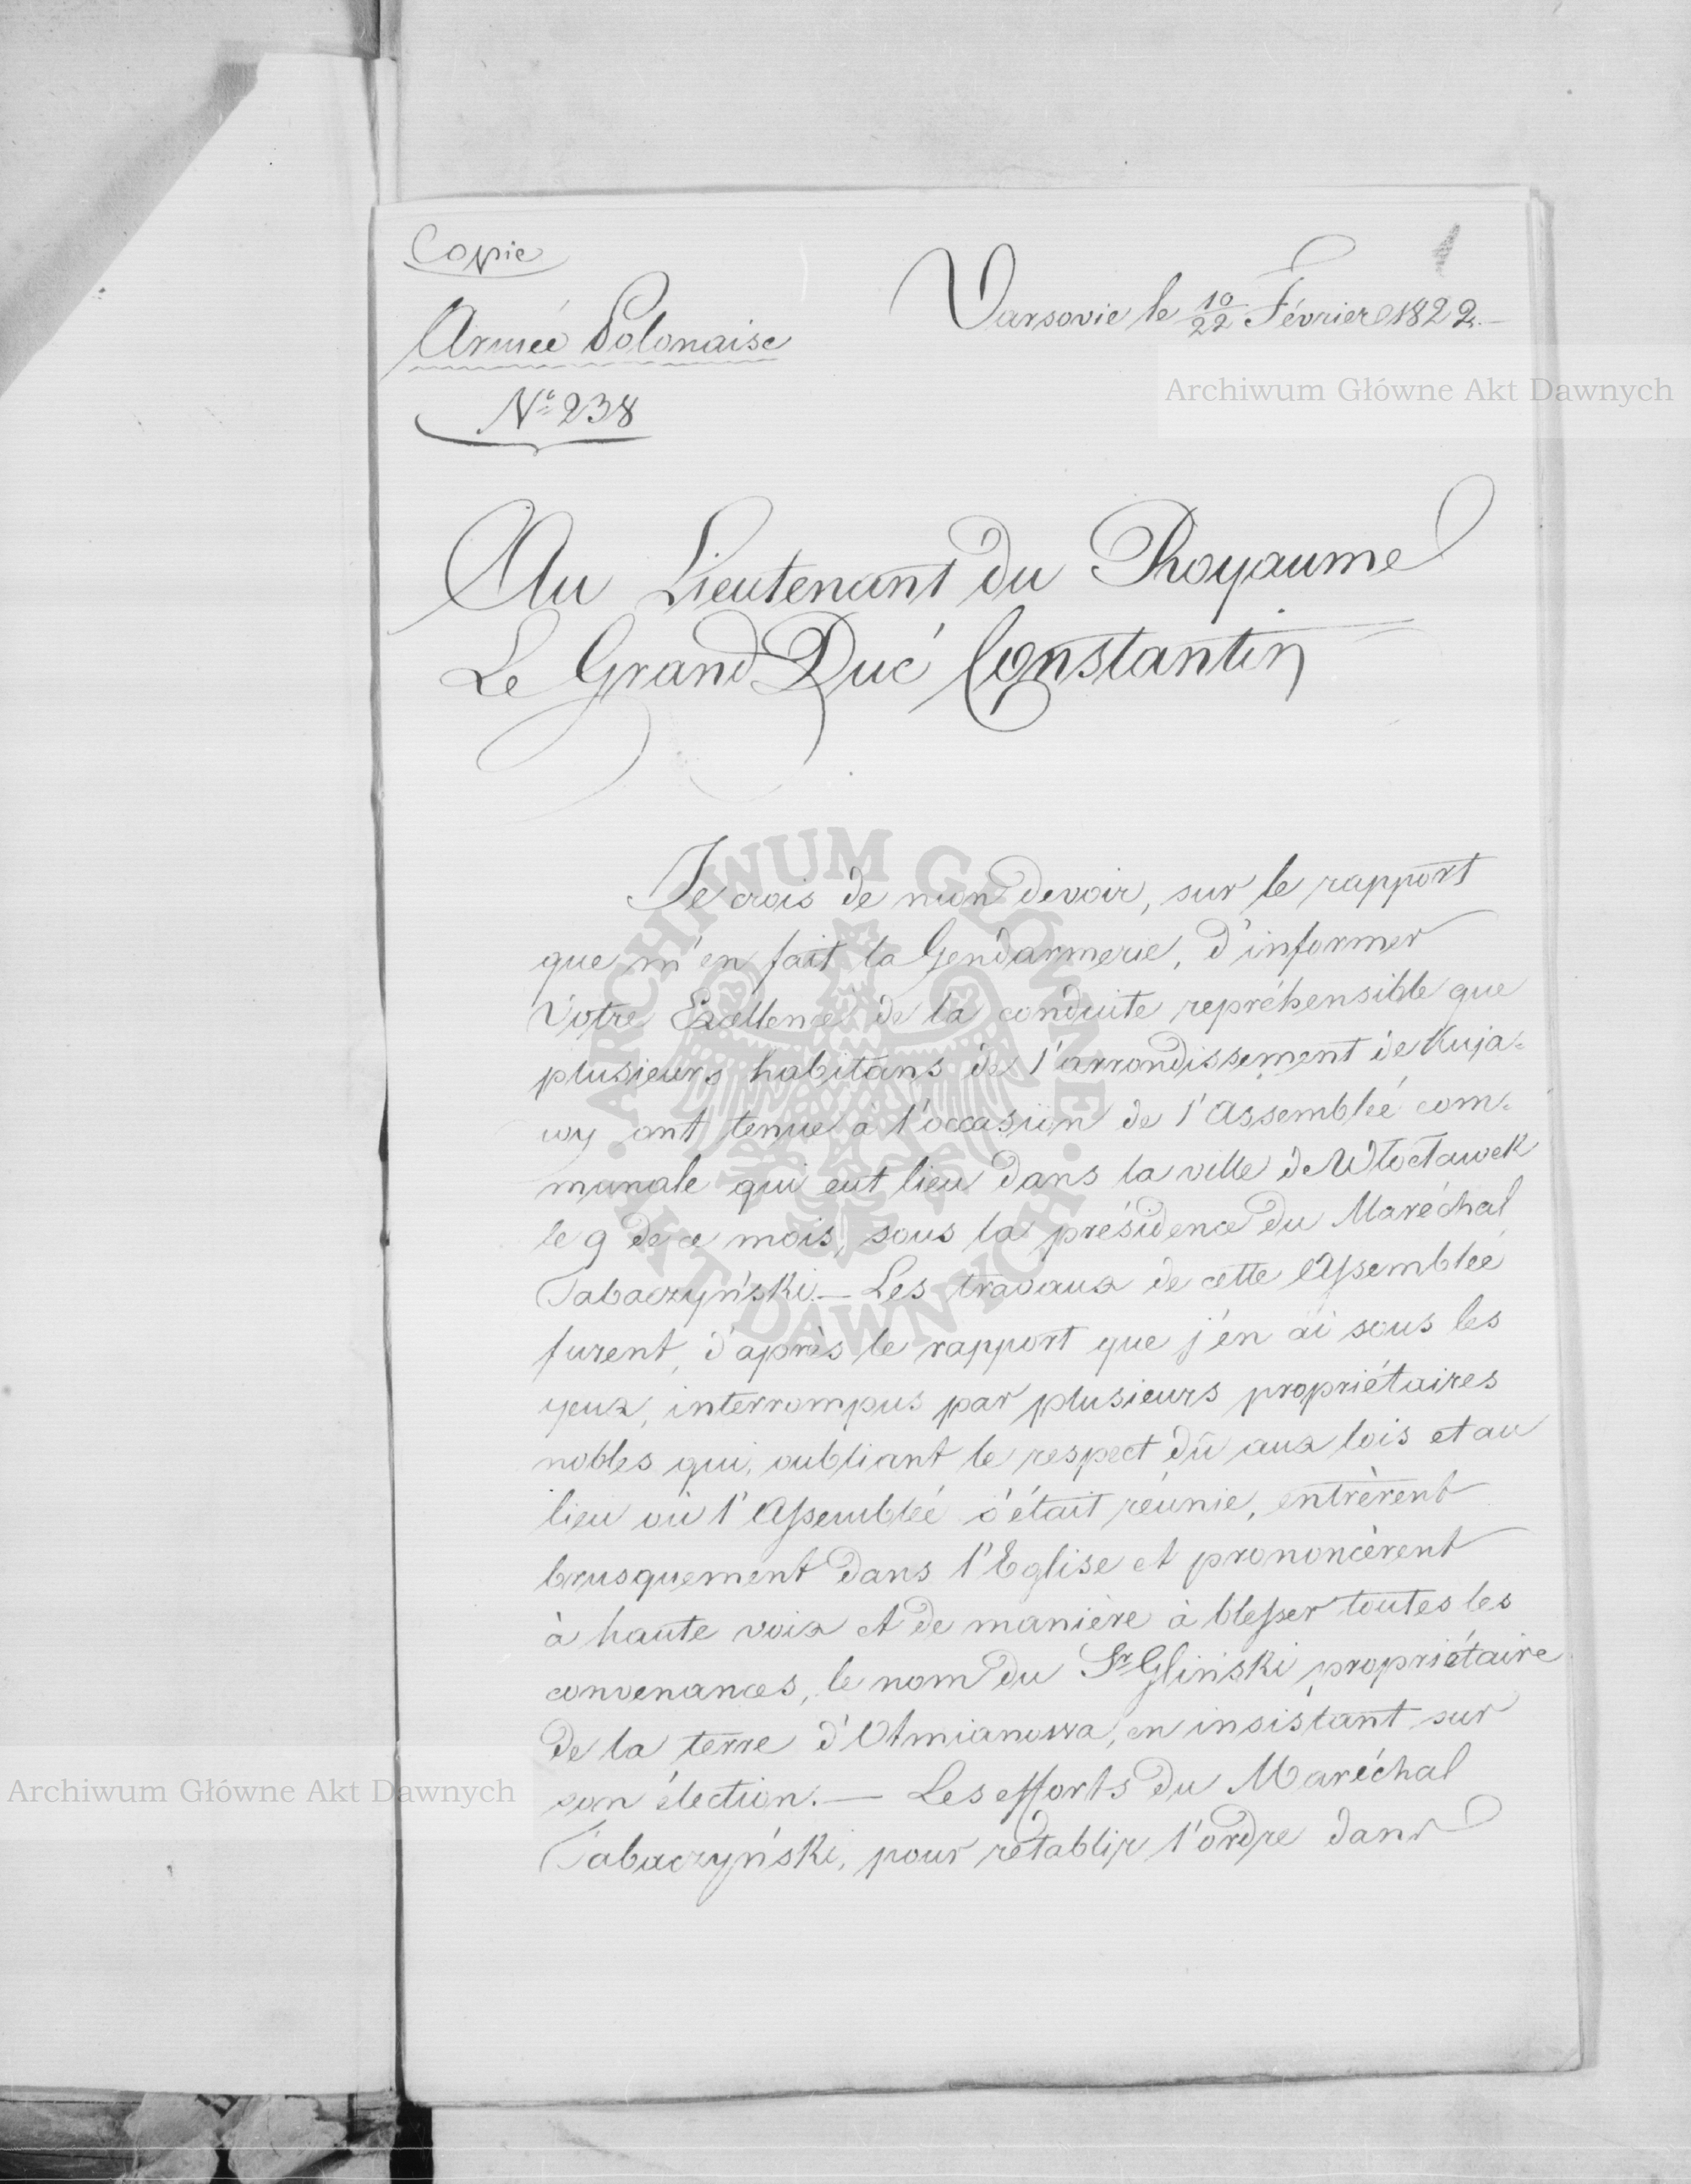 Copie
Varsovie le 10/22 Février 1822.
Armée Polonaise
Nº 238
Au Lieutenant du Royaume
Le Grand Duc Constantin
Je crois de mon devoir, sur le rapport
que m'en fait la Gendarmerie, d'informer
Votre Excellence de la conduite repréhensible que
plusieurs habitans de l'arrondissement de Kuja=
wy ont tenue à l'occasion de l'Assemblée com=
munale qui eut lieu dans la ville de Włocławek
le 9 de ce mois, sous la présidence du Maréchal
Tabaczyński. — Les travaux de cette Assemblée
furent, d'après le rapport que j'en ai sous les
yeux, interrompus par plusieurs propriétaires
nobles qui, oubliant le respect dû aux lois et au
lieu où l'Assemblée s'était réunie, entrèrent
brusquement dans l'Eglise et prononcèrent
à haute voix et de manière à blesser toutes les
convenances, le nom du Sr Gliński propriétaire
de la terre d'Otmianowa, en insistant sur
son élection. — Les efforts du Maréchal
Tabaczyński, pour rétablir l'ordre dans
Archiwum Główne Akt Dawnych
ARCHIWUM GŁÓWNE AKT DAWNYCH
Archiwum Główne Akt Dawnych